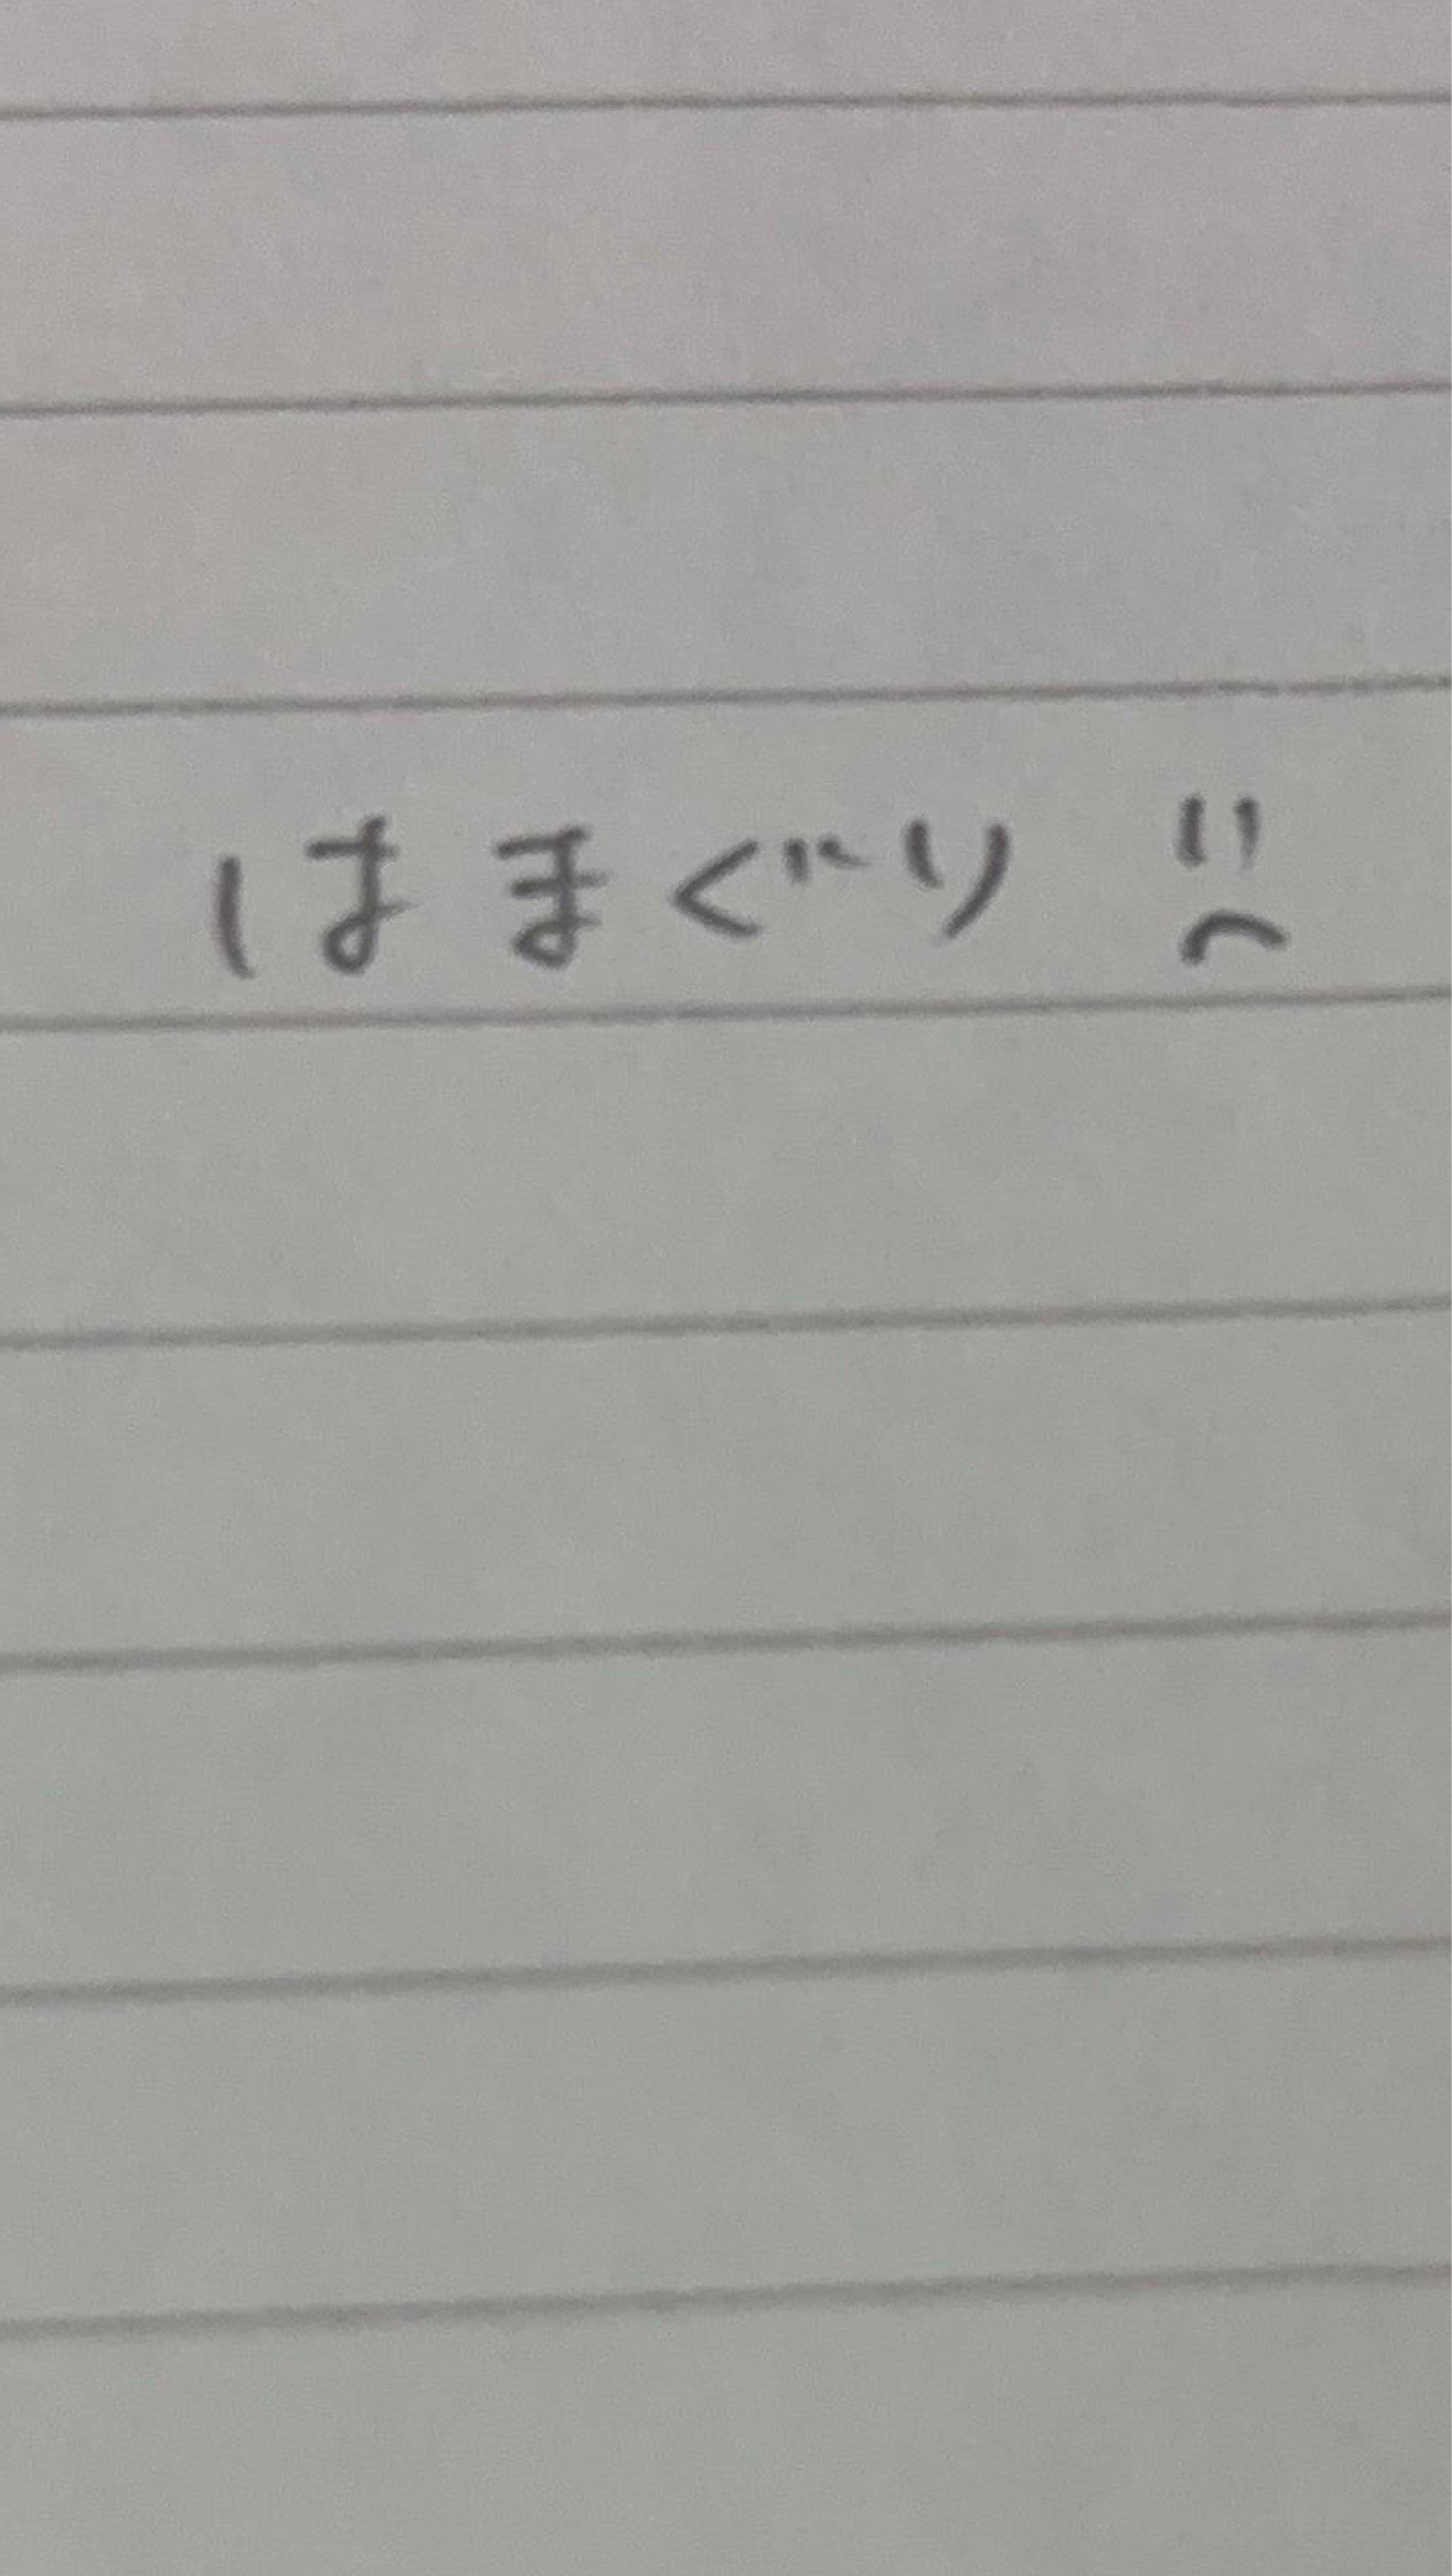 はまぐり